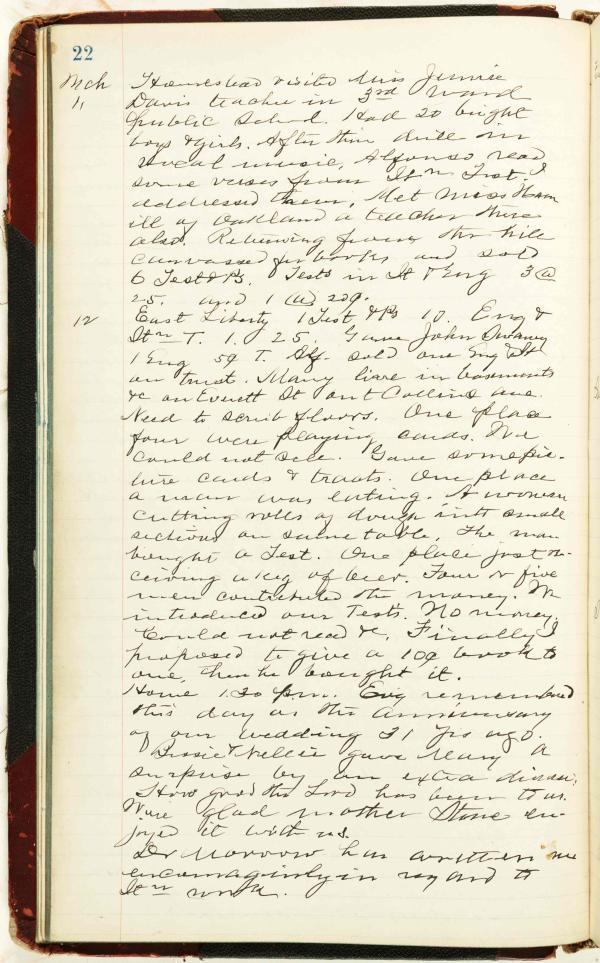 22
Mch Homestead visited Miss Jennie
11 Davis teacher in 3rd ward
public school. Had 20 bright
boys & girls. After their drill in
vocal music, Alfonso read
some verses from Itn Test. I
addressed them. Met Miss Ham
ill of Oakland a teacher there
also. Returning from the hill
canvassed for books and sold
6 Test & Ps. Tests in It & Eng 3 @
25. and 1 @ 20¢.
12 East Liberty 1 Test & Ps 10. Eng &
Itn T. 1. 25. Gave John
1 Eng 5¢ T. Alf. sold one Eng & It
on trust. Many live in basements
&c on Everett St out Collins ave.
Need to scrub floors. One place
four were playing cards. We
could not sell. Gave some pic-
ture cards & tracts. One place
a man was eating. A woman
cutting rolls of dough into small
sections on same table. The man
bought a Test. One place just re-
ceiving a keg of beer. Four or five
men contributed the money. We
introduced our Tests. No money.
Could not read &c. Finally I
proposed to give a 10¢ book to
one, then he bought it.
Home 1.30 p.m. Eng remembered
this day as the anniversary
of our wedding 31 yrs ago.
Bessie & Nellie gave Mary a
surprise by an extra dinner.
How good the Lord has been to us.
Were glad mother Stone en-
joyed it with us.
Dr Morrow has written me
encouragingly in regard to
Itn work.